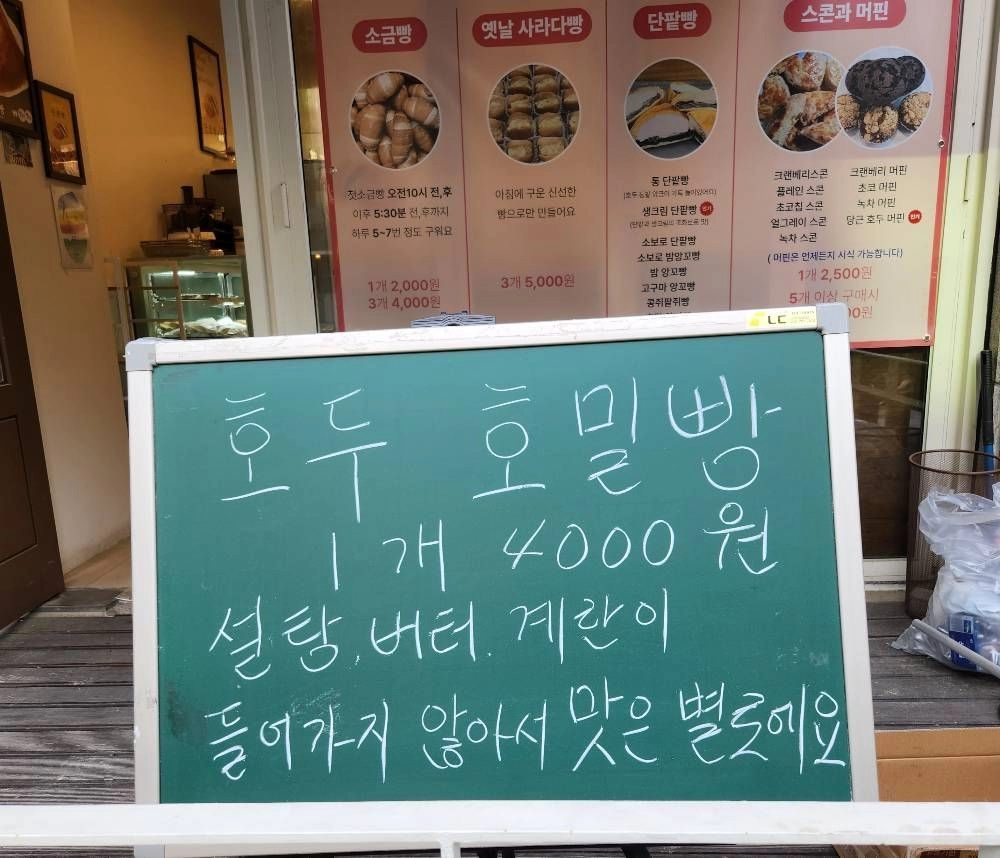 소금빵
첫소금빵 오전10시 전,후
이후 5:30분 전,후까지
하루 5~7번 정도 구워요
1개 2,000원
3개 4,000원
옛날 사라다빵
아침에 구운 신선한
빵으로만 만들어요
3개 5,000원
단팥빵
통 단팥빵
생크림 단팥빵 인기
소보로 단팥빵
소보로 밤앙꼬빵
밤 앙꼬빵
고구마 앙꼬빵
콩쥐팥쥐빵
스콘과 머핀
크랜베리스콘
플레인 스콘
초코칩 스콘
얼그레이 스콘
녹차 스콘
크랜베리 머핀
초코 머핀
녹차 머핀
당근 호두 머핀 인기
( 머핀은 언제든지 시식 가능합니다)
1개 2,500원
5개 이상 구매시
00원
LC
호두 호밀빵
1개 4000원
설탕. 버터. 계란이
들어가지 않아서 맛은 별로에요